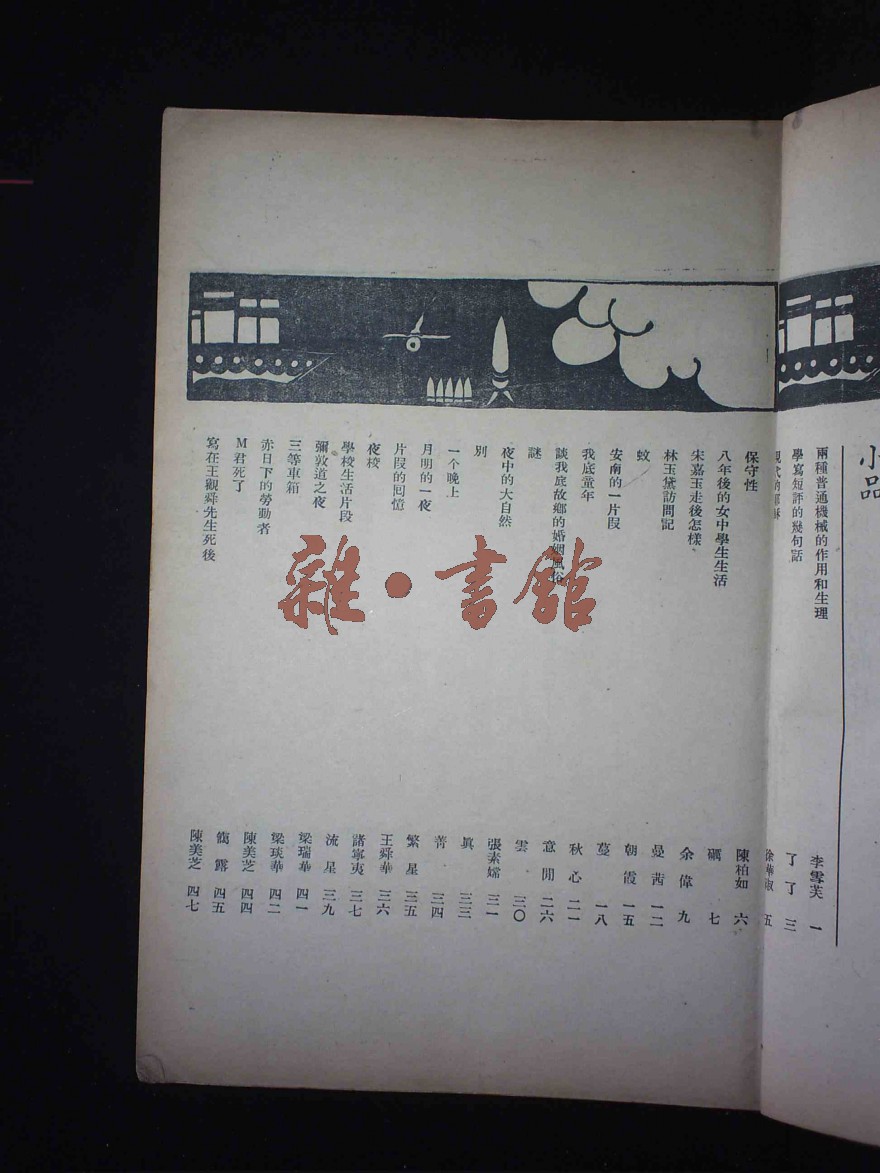 小品
兩種普通機械的作用和生理 李雪芙 一
學寫短評的幾句話 了了 三
現代的 徐華 五
保守性 陳柏如 六
八年後的女中學生生活 礪 七
宋嘉玉走後怎樣 余偉 九
林玉黛訪問記 曼茜 一二
蚊 朝霞 一五
安南的一片段 蔓 一八
我底童年 秋心 二一
談我底故鄉的婚姻風俗 意閒 二六
謎 雲 三〇
夜中的大自然 張素嫦 三一
別 眞 三三
一个晚上 菁 三四
月明的一夜 繁星 三五
片段的囘憶 王舜華 三六
夜校 諸寧夷 三七
學校生活片段 流星 三九
彌敦道之夜 梁瑞華 四一
三等車箱 梁琰華 四二
赤日下的勞動者 陳美芝 四四
M君死了 露 四五
寫在王觀舜先生死後 陳美芝 四七
雜·書館